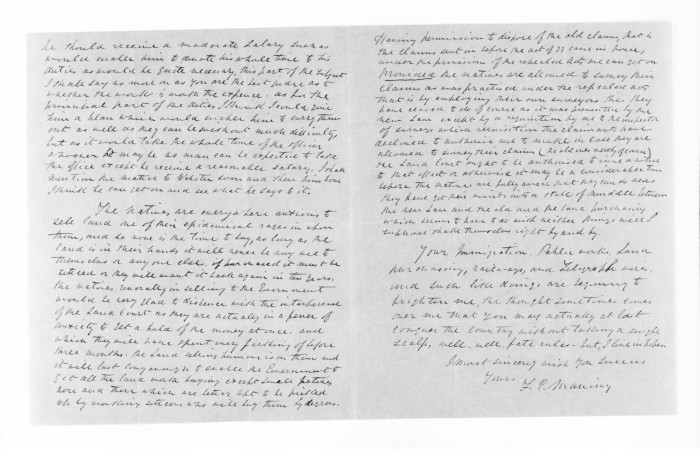 he should receive a moderate salary such as
would enable him to devote his whole time to his
duties as would be quite necessary, this part of the subject
I shall say as much as you are the best judge as to
whether the work is worth the expence. as for the
principal part of the duties, I think I could give
him a plan which would enable him to carry them
out as well as they can be without much difficulty,
but as it would take the whole time of the officer
whoever he may be no man can be expected to take
the office except he receive a reasonable salary. I shall
mention the matter to Webster soon and show him how
I think he can get on and see what he says to it.
The Natives are everywhere anxious to
sell land one of their epidemical crazes is upon
them, and so now is the time to buy, as long as the
land is in their hands it will never be any use to
themselves or any one else. if purchased it must be
settled or they will want it back again in ten years.
the natives generally in selling to the Government
would be very glad to dispense with the interference
of the Land Court as they are actually in a fever of
anxiety to get a hold of the money at once. and
which they will have spent every farthing of before
three months. the land selling humour is on them and
it will last long enough to enable the Government to
get all the land worth buying except small patches
here and there which are better left to be picked
up by working settlers who will buy them by degrees.
Having permission to dispose of the old claims, that is
the claims sent in before the act of 73 came in force,
under the provision of the repealed Acts we can get on
Provided the natives are allowed to survey their
claims as was practised under the repealed acts
that is by employing their own surveyors this they
have ceased to do of course as it was prevented by the
new Law except by a requisition by me to the inspector
of surveys which requisition the claimants have
declined to authorise me to make in case they are
allowed to survey their claims,
the Land Court ought to be authorised to issue a notice
to that effect or otherwise it may be a considerable time
before the natives are fully aware that they can do so as
they have got their minds into a state of muddle between
the new Law and the old and the land purchasing
which seems to have to do with neither. things will I
suppose shake themselves right by and by.
Your Immigration, Public works, Land
purchasing, railways, and Telegraph wires.
and such like doings are beginning to
frighten me, the thought sometimes comes
over me that you may actually at last
conquer the country without taking a single
scalp, well. well fate rules. but, I live in hopes
I most sincerely wish you success
Yours
F. E. Maning